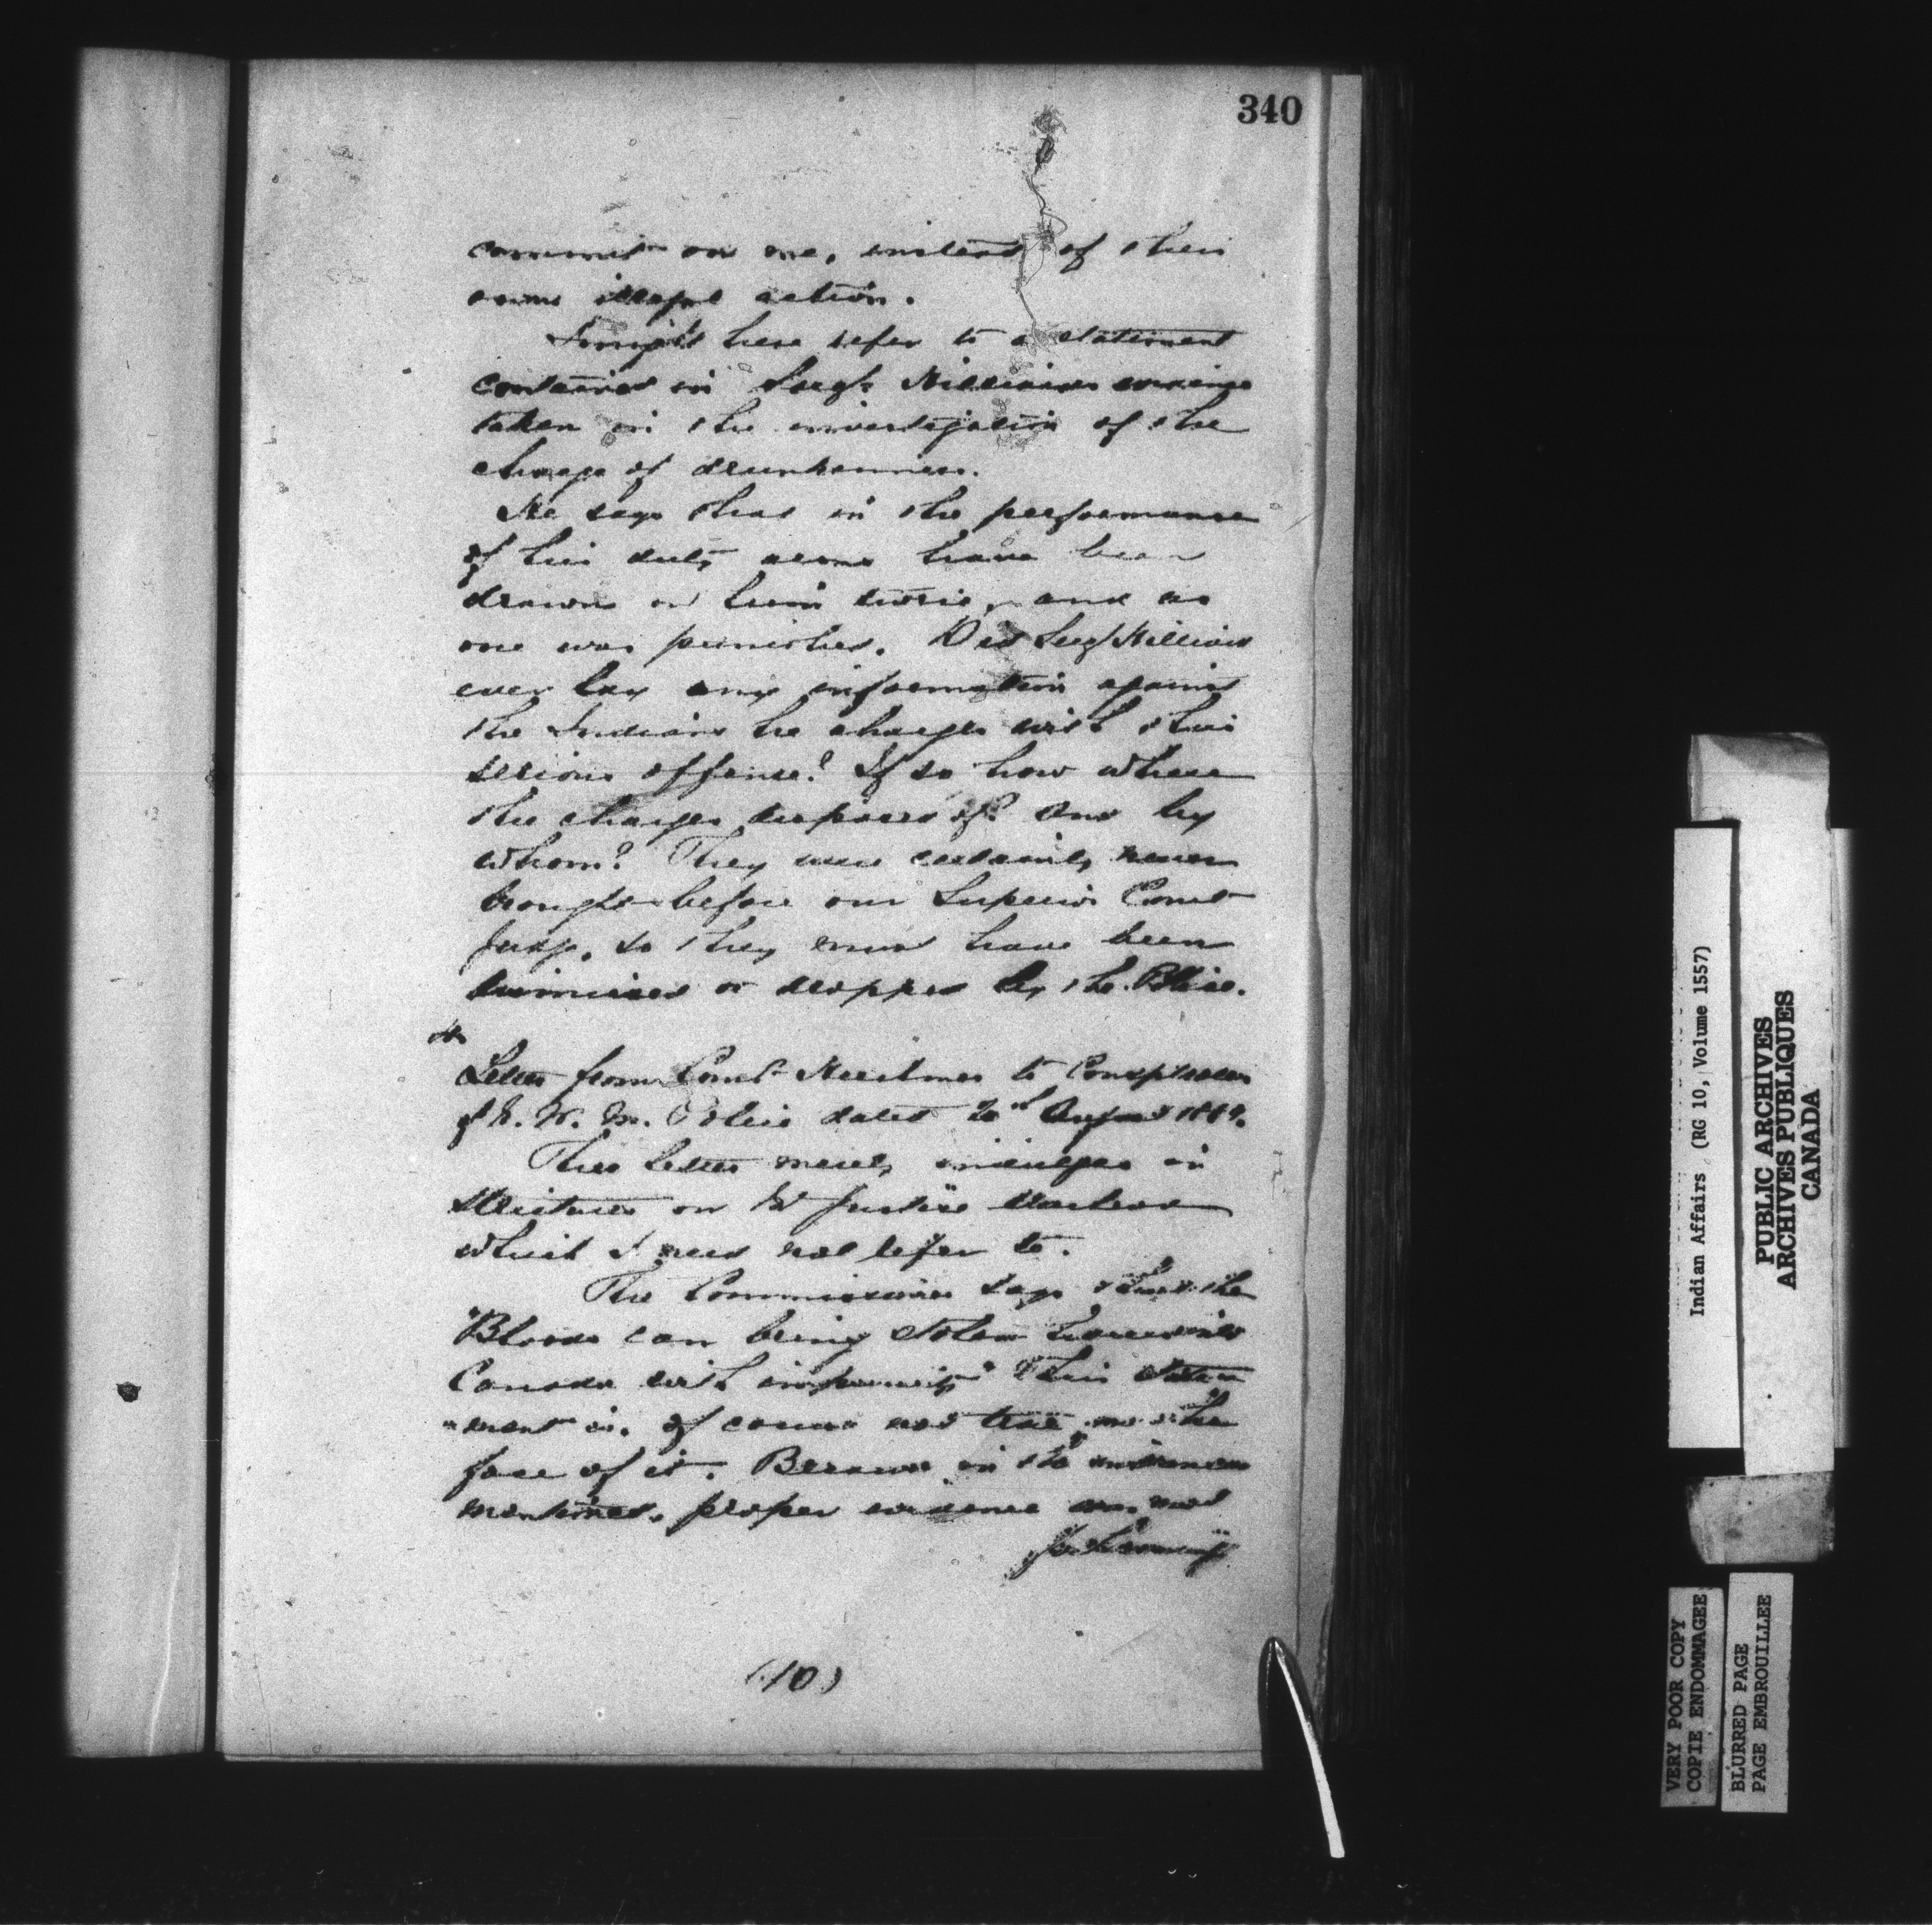 340
commit on me, instead of their
own illegal action.
I might here refer to a statement
contained in Sergt Hilliards evidence
taken in the investigation of the
charge of drunkenness.
He says that in the performance
of his duty arms have been
drawn on him twice, and no
one was punished. Did Sergt Hilliard
ever lay any information against
the Indians he charges with this
serious offense? If so how where
the charges disposed of? and by
whom? They were certainly never
brought before our Superior Court
Judge, so they must have been
dismissed or dropped by the Police.
Letter from Comr Herchmer to Comptroller
of N. W. M. Police dated 20th August 1889.
This letter merely indulges in
strictures on Mr Justice Macleod
which I need not refer to.
The Commissioner says that the
"Bloods can bring stolen horses into
Canada with impunity" This state
"ment is, of course not true on the
face of it. Because in the instances
mentioned, proper evidence was not
(10)
Indian Affairs. (RG 10, Volume 1557)
PUBLIC ARCHIVES
ARCHIVES PUBLIQUES
CANADA
VERY POOR COPY
COPIE ENDOMMAGEE
BLURRED PAGE
PAGE EMBROUILLEE